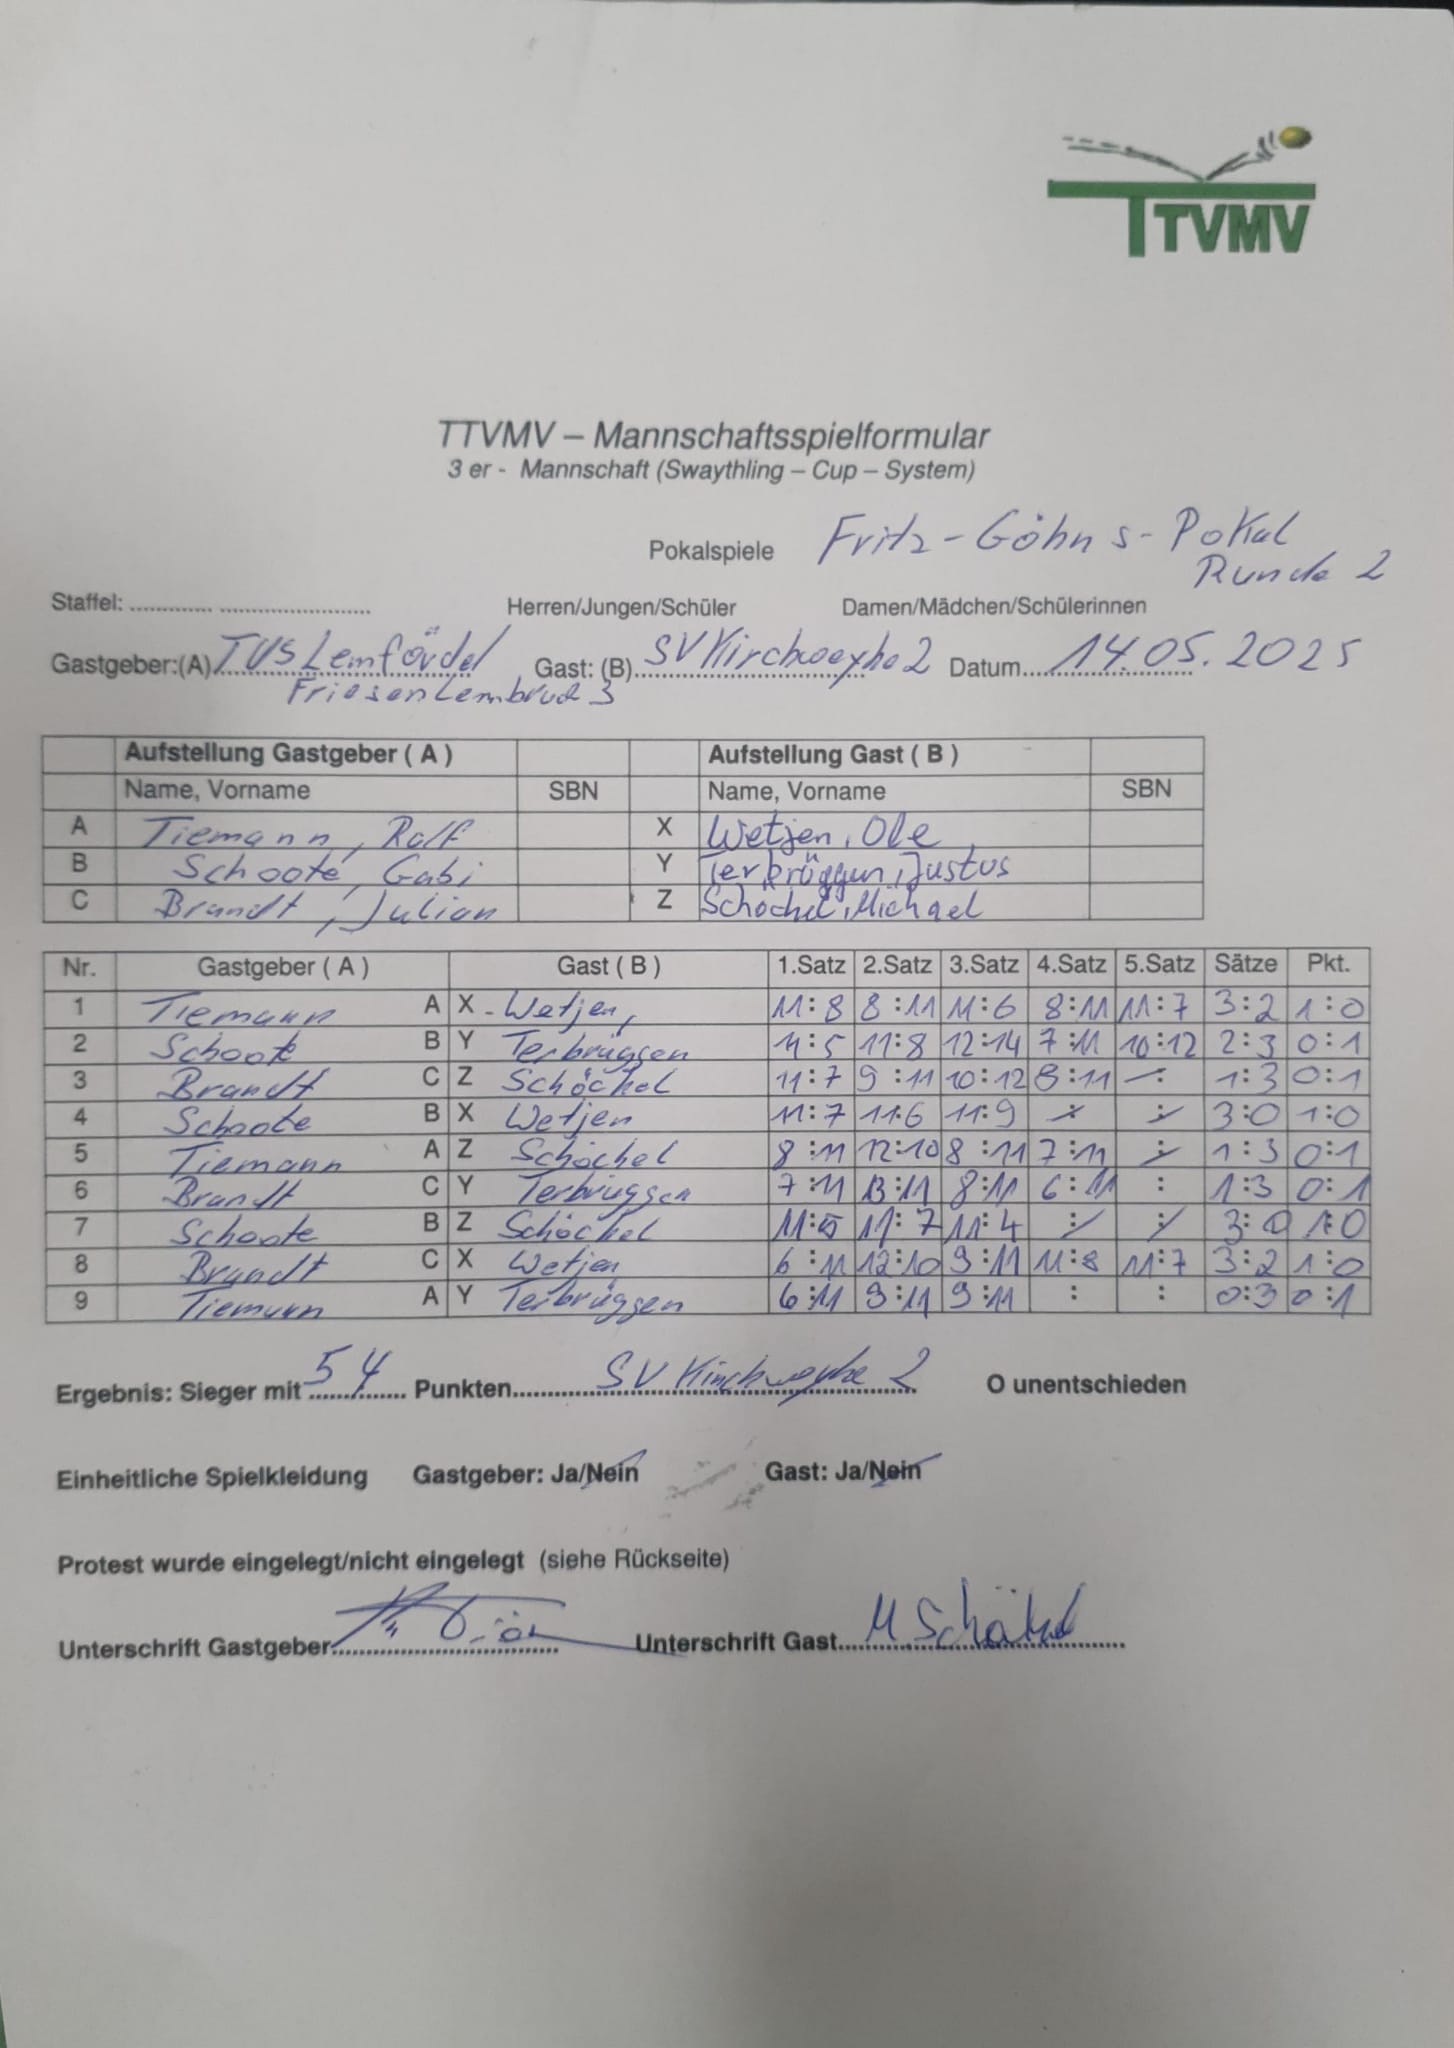 TTVMV
TTVMV – Mannschaftsspielformular
3 er - Mannschaft (Swaythling – Cup – System)
Pokalspiele Fritz-Göhns-Pokal
Runde 2
Staffel: ............. ........................ Herren/Jungen/Schüler Damen/Mädchen/Schülerinnen
Gastgeber:(A) TUS Lemförde/ Gast: (B) SV Kirchweyhe 2 Datum 14.05.2025
Friesen Lembruch 3
Aufstellung Gastgeber ( A ) Aufstellung Gast ( B )
Name, Vorname SBN Name, Vorname SBN
A Tiemann, Ralf X Wetjen, Ole
B Schoote, Gabi Y Terbrüggen, Justus
C Brandt, Julian Z Schöchel, Michael
Nr. Gastgeber ( A ) Gast ( B ) 1.Satz 2.Satz 3.Satz 4.Satz 5.Satz Sätze Pkt.
1 Tiemann A X - Wetjen, 11:8 8:11 11:6 8:11 11:7 3:2 1:0
2 Schoote B Y Terbrüggen 11:5 11:8 12:14 7:11 10:12 2:3 0:1
3 Brandt C Z Schöchel 11:7 9:11 10:12 8:11 -: 1:3 0:1
4 Schoote B X Wetjen 11:7 11:6 11:9 : : 3:0 1:0
5 Tiemann A Z Schöchel 8:11 12:10 8:11 7:11 : 1:3 0:1
6 Brandt C Y Terbrüggen 7:11 13:11 8:11 6:11 : 1:3 0:1
7 Schoote B Z Schöchel 11:5 11:7 11:4 : : 3:0 1:0
8 Brandt C X Wetjen 6:11 12:10 9:11 11:8 11:7 3:2 1:0
9 Tiemann A Y Terbrüggen 6:11 9:11 9:11 : : 0:3 0:1
Ergebnis: Sieger mit 5 4 Punkten SV Kirchweyhe 2 O unentschieden
Einheitliche Spielkleidung Gastgeber: Ja/Nein Gast: Ja/Nein
Protest wurde eingelegt/nicht eingelegt (siehe Rückseite)
Unterschrift Gastgeber Unterschrift Gast M. Schöchel